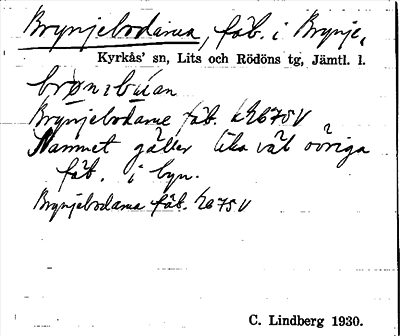 Brynjebodarna, fäb. i Brynje,
Kyrkås' sn, Lits och Rödöns tg, Jämtl. l.
Brynjebodarne fäb. 2675V
Namnet gäller lika väl övriga
fäb. i byn.
Brynjebodarna fäb. 2675V
C. Lindberg 1930.